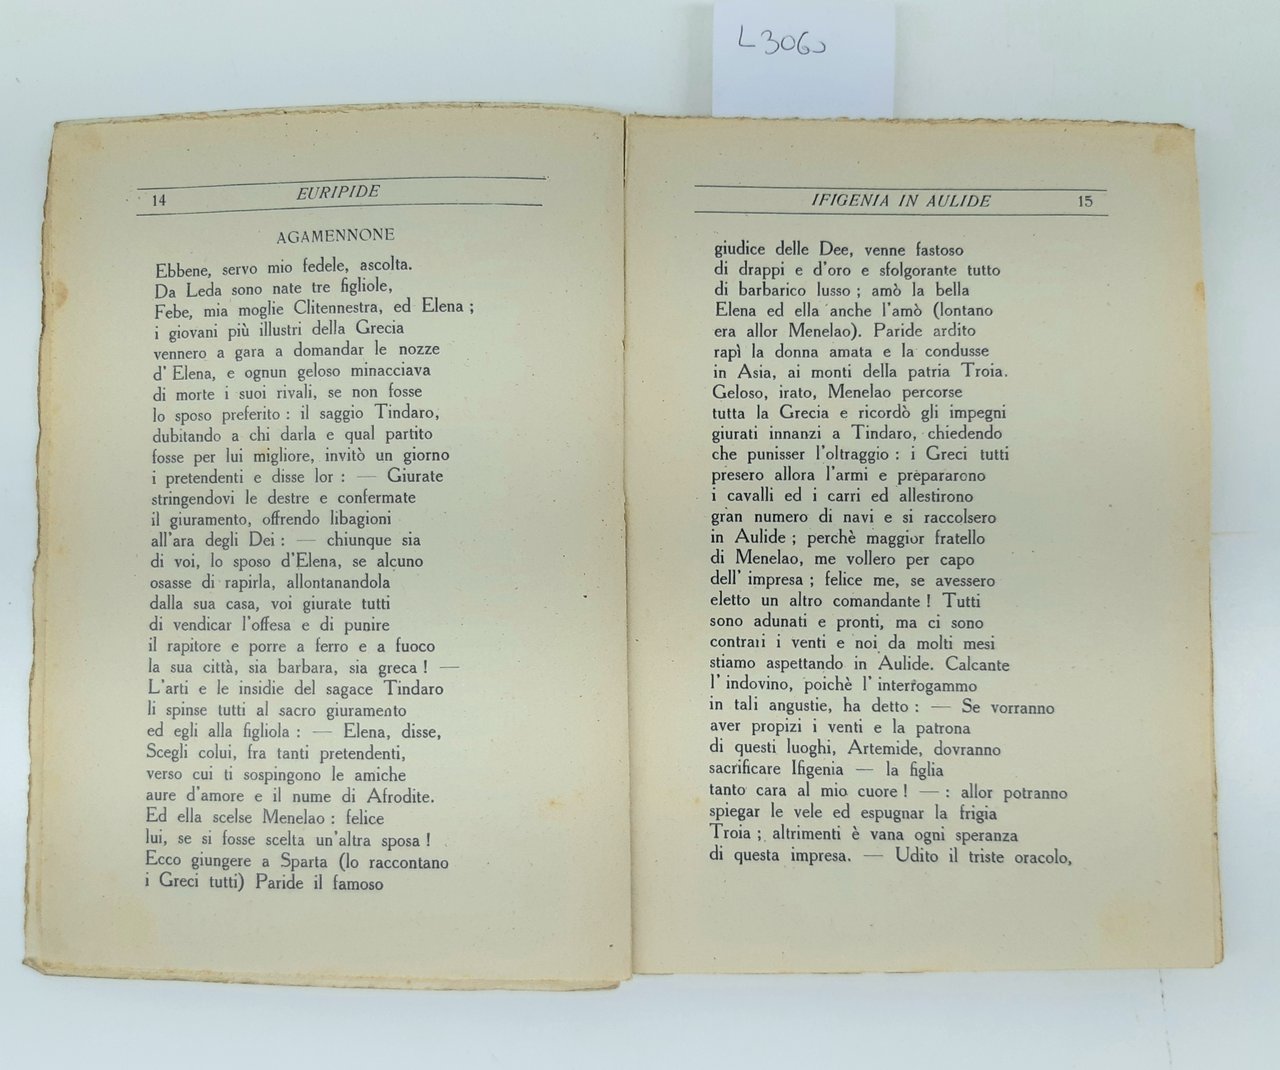 L3060
14 EURIPIDE
AGAMENNONE
Ebbene, servo mio fedele, ascolta.
Da Leda sono nate tre figliole,
Febe, mia moglie Clitennestra, ed Elena ;
i giovani più illustri della Grecia
vennero a gara a domandar le nozze
d' Elena, e ognun geloso minacciava
di morte i suoi rivali, se non fosse
lo sposo preferito : il saggio Tindaro,
dubitando a chi darla e qual partito
fosse per lui migliore, invitò un giorno
i pretendenti e disse lor : — Giurate
stringendovi le destre e confermate
il giuramento, offrendo libagioni
all'ara degli Dei : — chiunque sia
di voi, lo sposo d'Elena, se alcuno
osasse di rapirla, allontanandola
dalla sua casa, voi giurate tutti
di vendicar l'offesa e di punire
il rapitore e porre a ferro e a fuoco
la sua città, sia barbara, sia greca ! —
L'arti e le insidie del sagace Tindaro
li spinse tutti al sacro giuramento
ed egli alla figliola : — Elena, disse,
Scegli colui, fra tanti pretendenti,
verso cui ti sospingono le amiche
aure d'amore e il nume di Afrodite.
Ed ella scelse Menelao : felice
lui, se si fosse scelta un'altra sposa !
Ecco giungere a Sparta (lo raccontano
i Greci tutti) Paride il famoso
IFIGENIA IN AULIDE 15
giudice delle Dee, venne fastoso
di drappi e d'oro e sfolgorante tutto
di barbarico lusso ; amò la bella
Elena ed ella anche l'amò (lontano
era allor Menelao). Paride ardito
rapì la donna amata e la condusse
in Asia, ai monti della patria Troia.
Geloso, irato, Menelao percorse
tutta la Grecia e ricordò gli impegni
giurati innanzi a Tindaro, chiedendo
che punisser l'oltraggio : i Greci tutti
presero allora l'armi e prepararono
i cavalli ed i carri ed allestirono
gran numero di navi e si raccolsero
in Aulide ; perchè maggior fratello
di Menelao, me vollero per capo
dell' impresa ; felice me, se avessero
eletto un altro comandante ! Tutti
sono adunati e pronti, ma ci sono
contrari i venti e noi da molti mesi
stiamo aspettando in Aulide. Calcante
l' indovino, poichè l' interrogammo
in tali angustie, ha detto : — Se vorranno
aver propizi i venti e la patrona
di questi luoghi, Artemide, dovranno
sacrificare Ifigenia — la figlia
tanto cara al mio cuore ! — : allor potranno
spiegar le vele ed espugnar la frigia
Troia ; altrimenti è vana ogni speranza
di questa impresa. — Udito il triste oracolo,